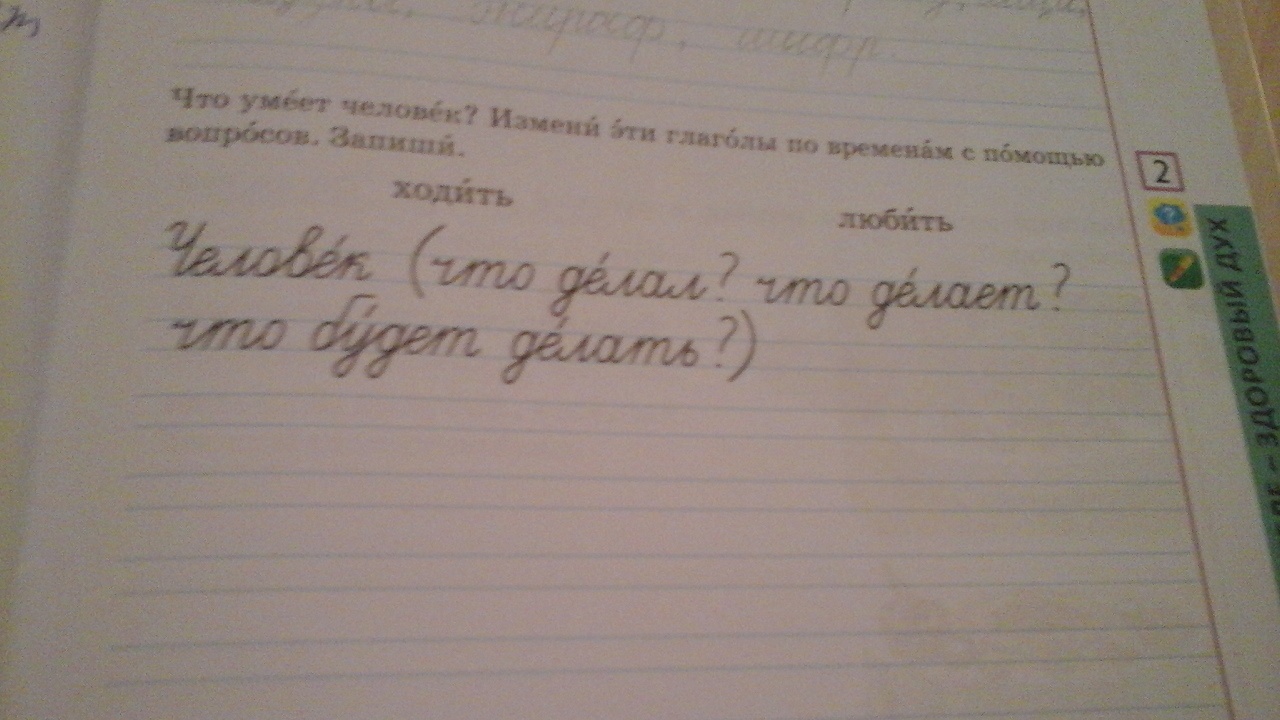 жираф, шифр.
Что уме́ет челове́к? Измени́ э́ти глаго́лы по времена́м с по́мощью
вопро́сов. Запиши́.
2
ходи́ть
люби́ть
Челове́к (что де́лал? что де́лает?
что бу́дет де́лать?)
ЗДОРОВЫЙ ДУХ